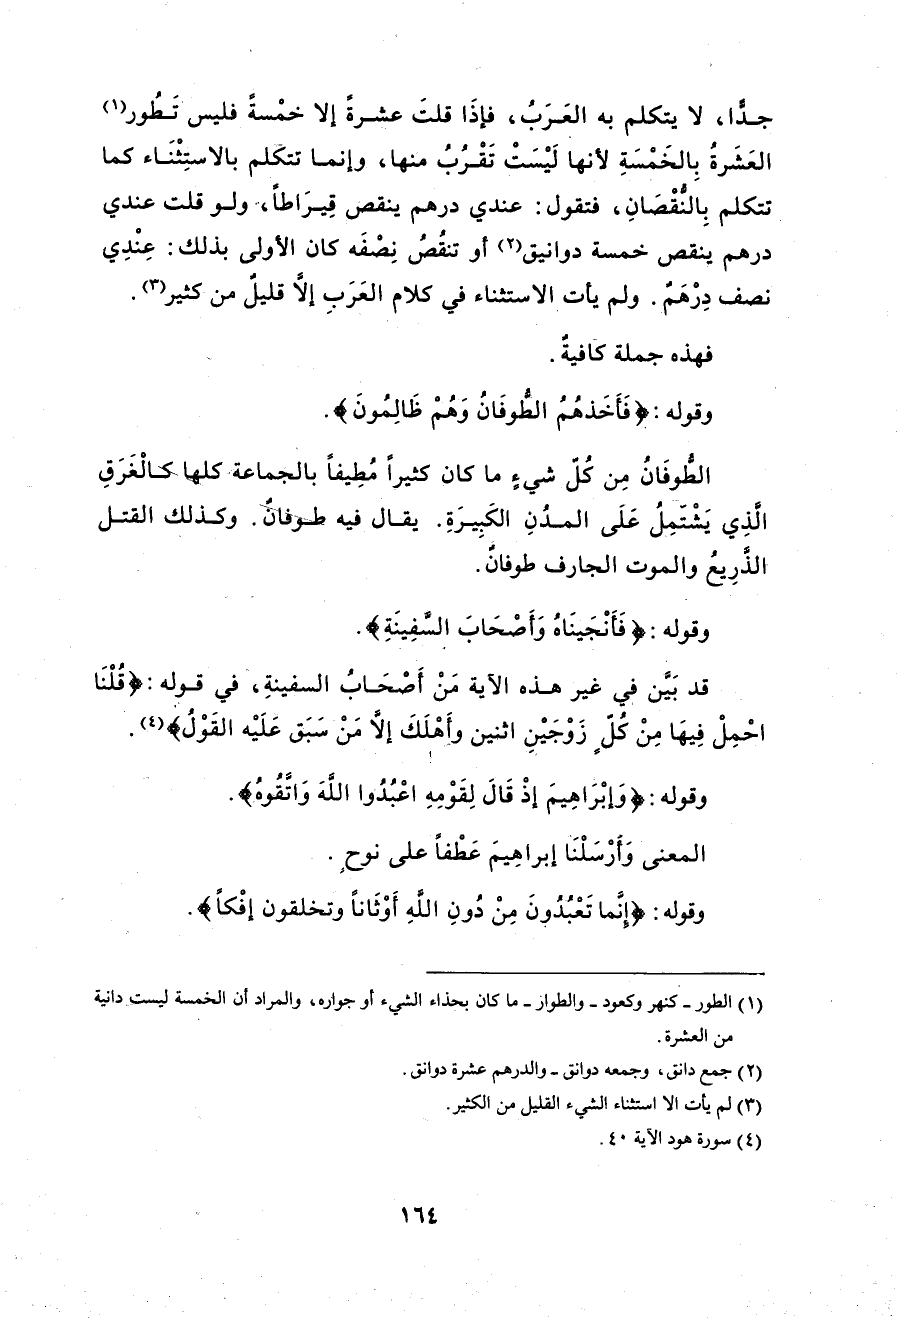 جـدًّا، لا يتكلم به العَـرَبُ، فإذَا قلتَ عشـرةً إلا خمْسةً فليس تَـطُور(١)
العَشَرةُ بِالخَمْسَةِ لأنها لَيْسَتْ تَقْرُبُ منها، وإنمـا تتكلم بالاستِثْنَـاء كما
تتكلم بِالنُّقْصَانِ، فتقول: عندي درهم ينقص قِيـرَاطاً، ولـو قلت عندي
درهم ينقص خمسة دوانيق(٢) أو تنقُصُ نِصْفَه كان الأولى بذلك: عِنْدِي
نصف دِرْهَمٌ. ولم يأت الاستثناء في كلام العَرَبِ إلَّا قليلٌ من كثير(٣).
فهذه جملة كافيةٌ.
وقوله: ﴿فَأَخَذهُمُ الطُّوفَانُ وَهُمْ ظَالِمُونَ﴾.
الطُّوفَانُ مِن كُلّ شيءٍ ما كان كثيراً مُطِيفاً بالجماعة كلها كـالْغَرَقِ
الَّذِي يَشْتَمِلُ عَلَى المـدُنِ الكَبِيـرَةِ. يقـال فيه طـوفانٌ. وكـذلك القتـل
الذَّرِيعُ والموت الجارف طوفانٌ.
وقوله: ﴿فَأَنْجَيناهُ وَأَصْحَابَ السَّفِينَةِ﴾.
قد بَيَّن في غير هـذه الآية مَنْ أَصْحَـابُ السفينةِ، في قـوله: ﴿قُلْنَا
احْمِلْ فِيهَا مِنْ كُلّ ٍ زَوْجَيْنِ اثنين وأَهْلَكَ إلَّا مَنْ سَبَق عَلَيْه القَوْلُ﴾(٤).
وقوله: ﴿وَإبْرَاهِيمَ إذْ قَالَ لِقَوْمِهِ اعْبُدُوا اللَّهَ وَاتَّقُوهُ﴾.
المعنى وَأَرْسَلْنَا إبراهِيمَ عَطْفاً على نوح ٍ.
وقوله: ﴿إنَّما تَعْبُدُونَ مِنْ دُونِ اللَّهِ أَوْثَاناً وتخلقون إفْكاً﴾.
(١) الطور ـ كنهر وكعود ـ والطوار ـ ما كان بحذاء الشيء أو جواره، والمراد أن الخمسة ليست دانية
من العشرة.
(٢) جمع دانق، وجمعه دوانق ـ والدرهم عشرة دوانق.
(٣) لم يأت الا استثناء الشيء القليل من الكثير.
(٤) سورة هود الآية ٤٠.
١٦٤